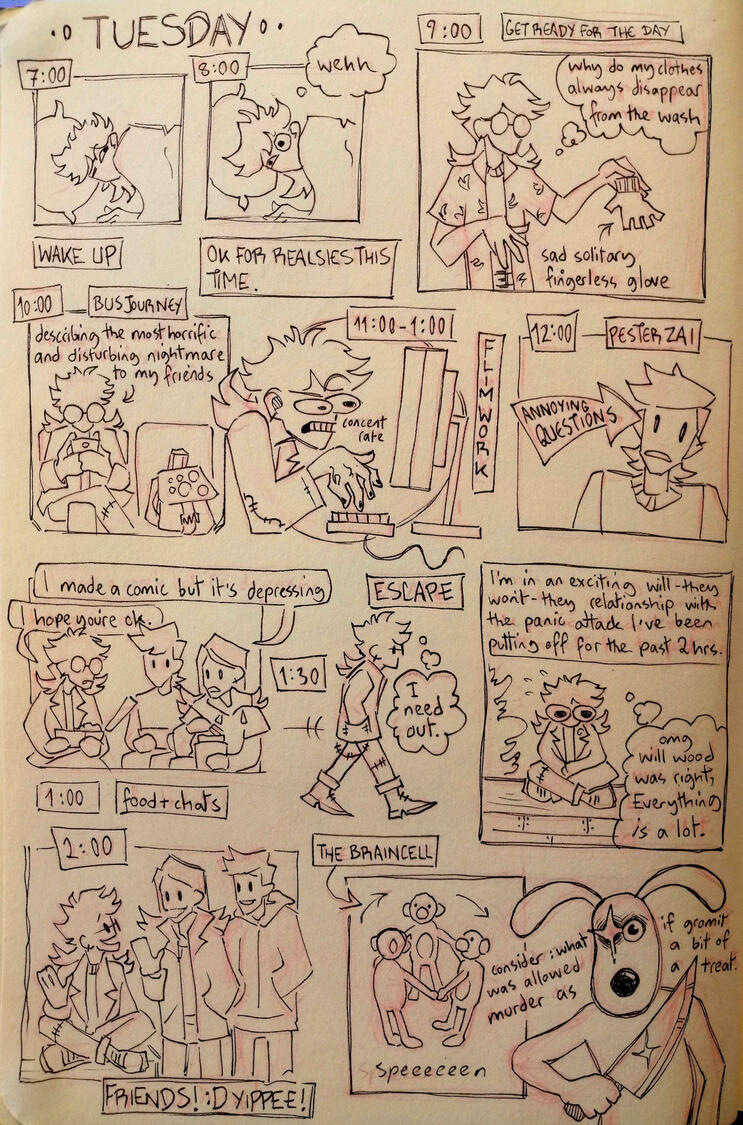 TUESDAY
7:00
WAKE UP
8:00
wehh
OK FOR REALSIES THIS
TIME.
9:00
GET READY FOR THE DAY
why do my clothes
always disappear
from the wash
sad solitary
fingerless glove
10:00
BUS JOURNEY
describing the most horrific
and disturbing nightmare
to my friends
11:00-1:00
FLIMWORK
concent
rate
12:00
PESTER ZAI
ANNOYING
QUESTIONS
I made a comic but it's depressing
I hope you're ok.
1:00
food + chats
1:30
ESCAPE
I
need
out.
I'm in an exciting will-they
won't-they relationship with
the panic attack I've been
putting off for the past 2 hrs.
omg
will wood
was right,
Everything
is a lot.
2:00
FRIENDS! :D YIPPEE!
THE BRAINCELL
speeeeeen
consider: what
was allowed
murder as
if gromit
a bit of
a treat.